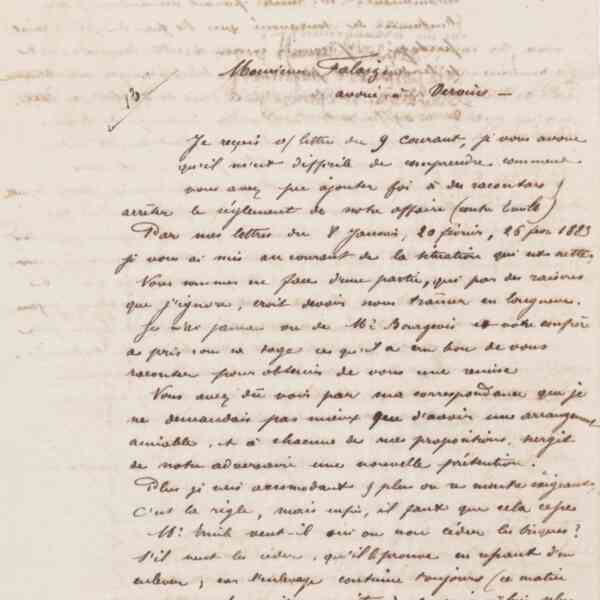 13
Monsieur
avoué à Vervins —
Je reçois v/ lettre du 9 courant, je vous avoue
qu'il m'est difficile de comprendre comment
vous avez pu ajouter foi à des racontars &
arrêter le règlement de notre affaire (contre
Par mes lettres du 8 Janvier, 20 février, 26 1883
je vous ai mis au courant de la situation qui est nette.
Nous sommes en face d'une partie, qui par des raisons
que j'ignore, croit devoir nous traîner en longueur.
Je n'ai jamais vu de Mr Bourgeois et votre confrère
a pris sous sa toge ce qu'il a cru bon de vous
raconter pour obtenir de vous une remise
Vous avez dû voir par ma correspondance que je
ne demandais pas mieux que d'avoir un arrangement
amiable, et à chacune de mes propositions, surgit
de notre adversaire une nouvelle prétention.
Plus je suis accomodant & plus on se montre exigeant,
C'est la règle, mais enfin, il faut que cela cesse
Mr veut-il oui ou non céder les briques?
S'il veut les céder, qu'il le prouve en refusant d'en
enlever; car l'enlevage continue toujours (ce matin